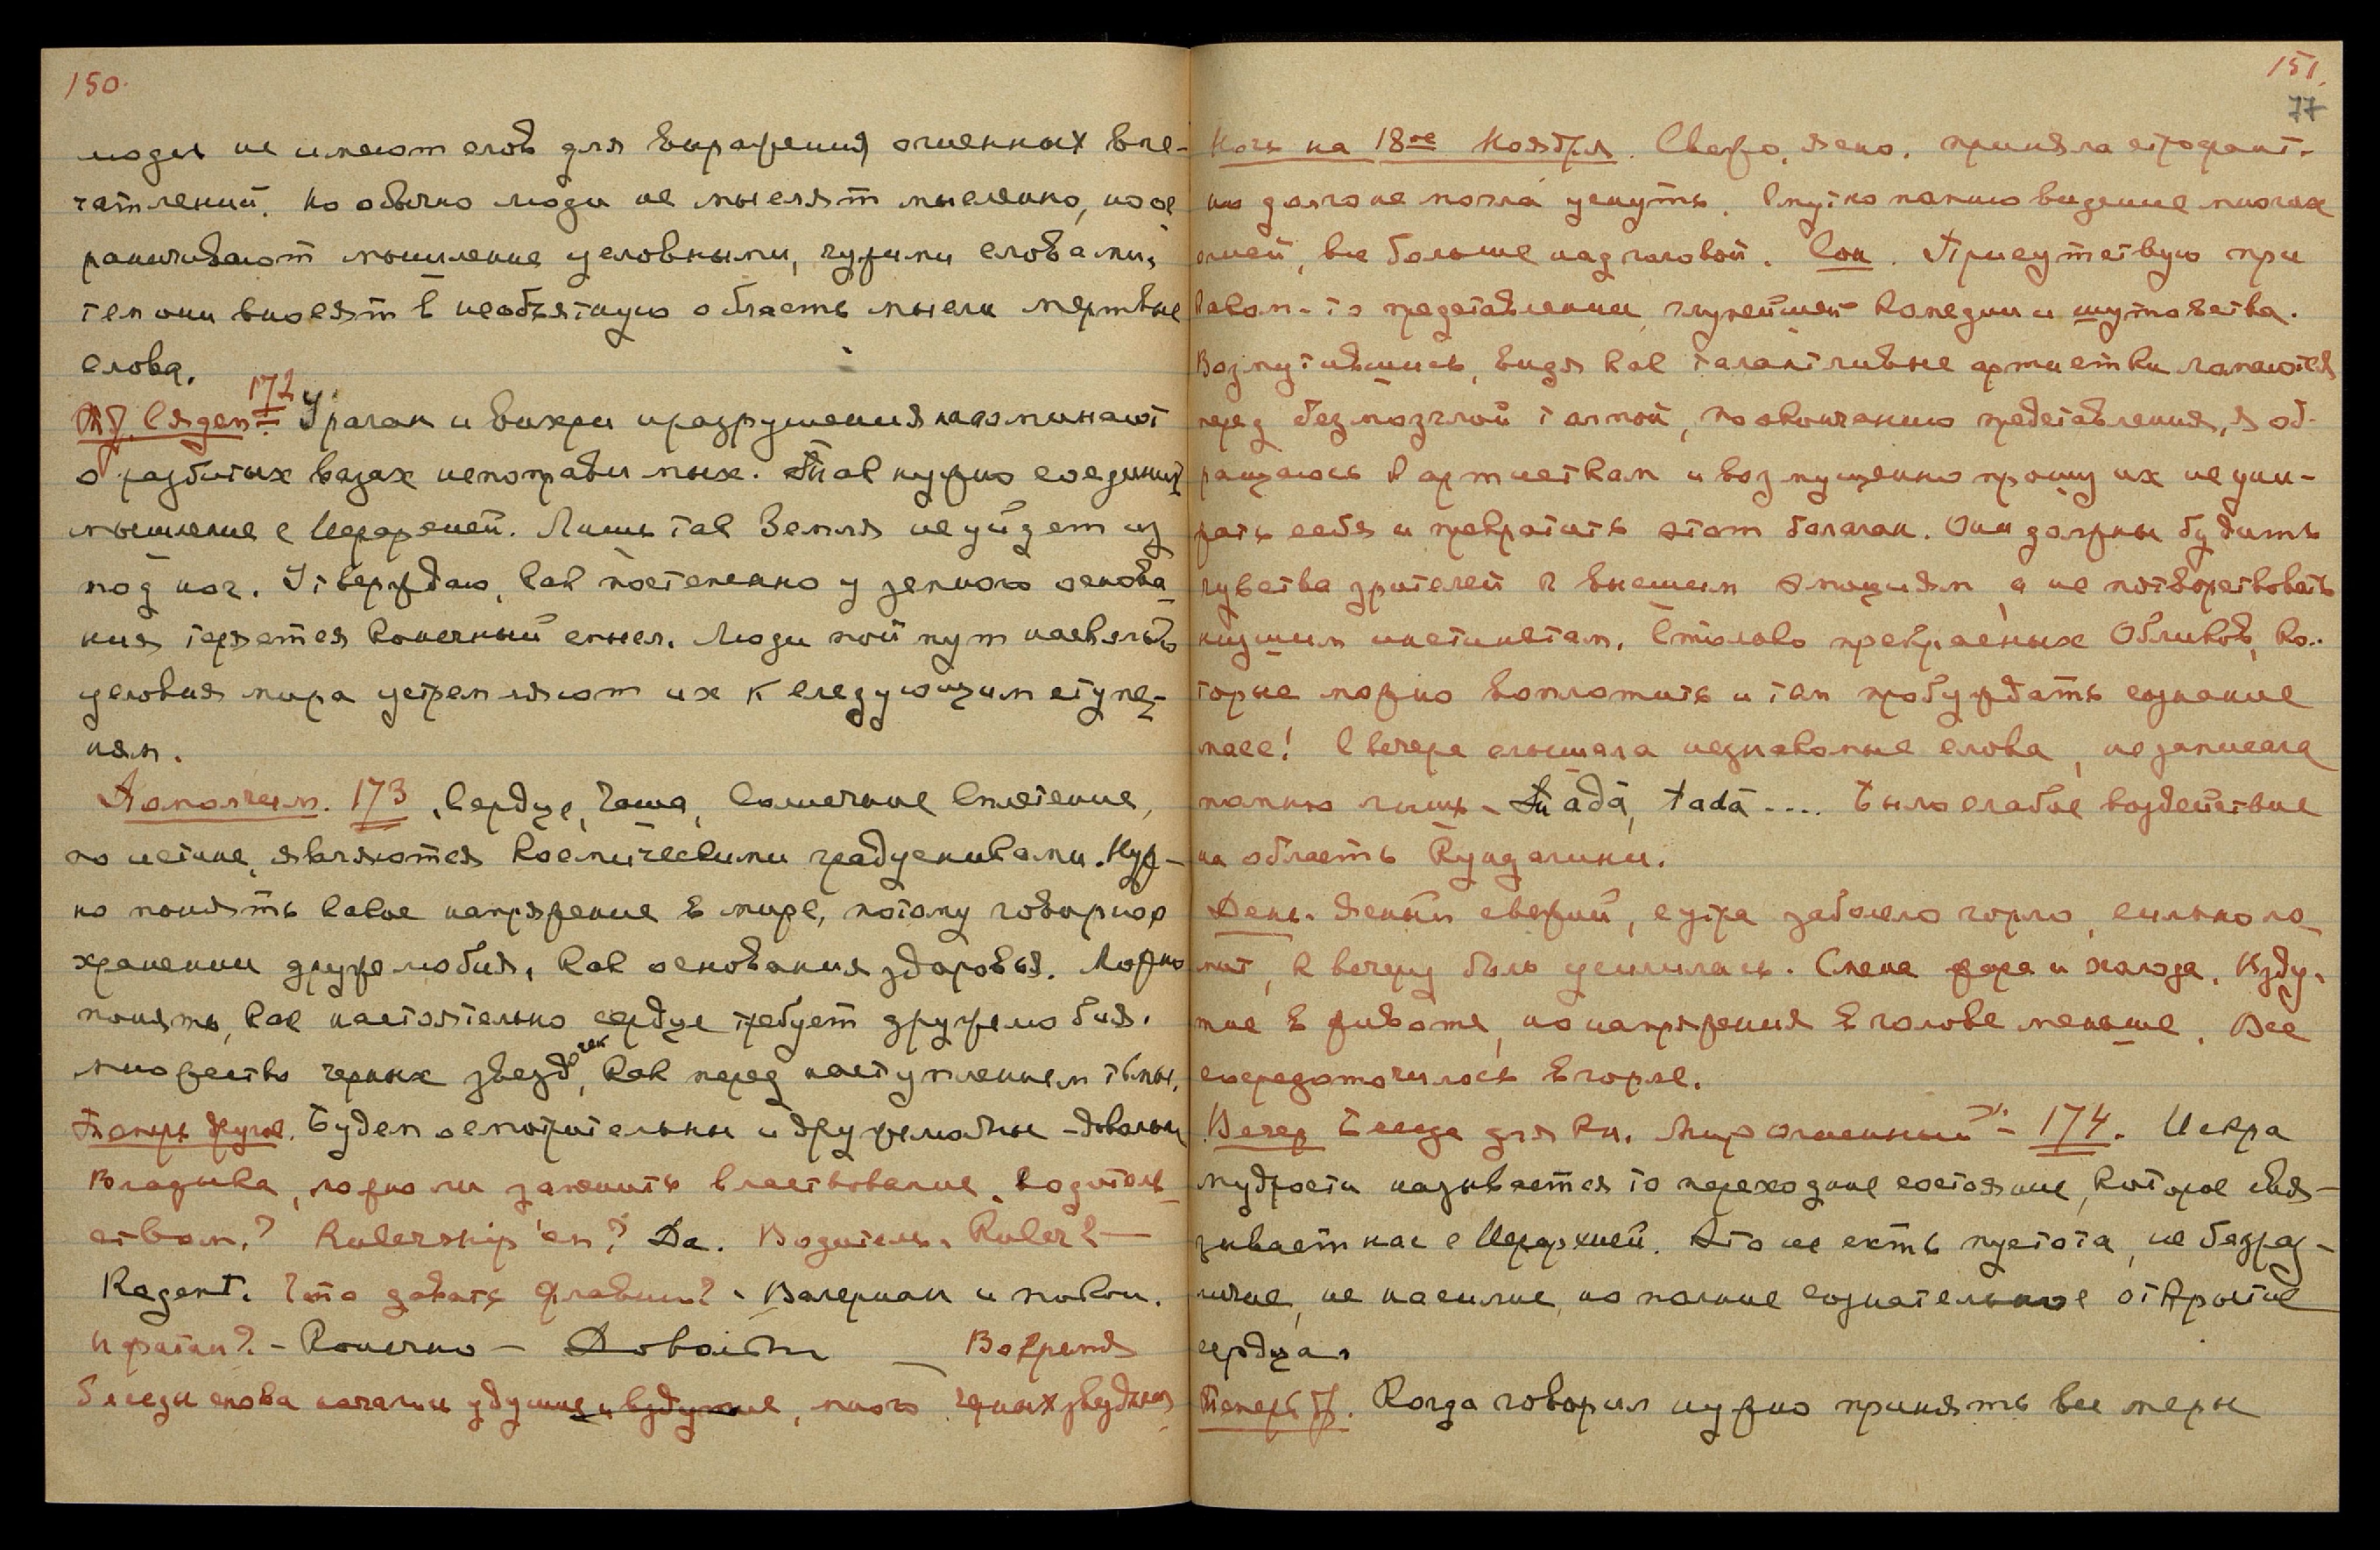 150.
люди не имеют слов для выражения огненных впе-
чатлений. Но обычно люди не мыслят мысленно, но ог
раничивают мышление условными, чужими словами,
тем они вносят в необъятную область мысли мертвые
слова.
172
Тр. Сядем. Ураган и вихри и разрушения напоминают
о разбитых вазах непоправимых. Так нужно соединить
мышление с Иерархией. Лишь так Земля не уйдет из
под ног. Утверждаю, как постепенно у земного основа
ния теряется конечный смысл. Люди поймут насколько
условия мира устремляют их к следующим ступе-
ням.
Дополним. 173. Сердце, Чаша, Солнечное Сплетение,
по истине, являются космическими градусниками. Нуж-
но понять какое напряжение в мире, потому говорю о
хранении дружелюбия, как основания здоровья. Можно
понять, как настоятельно сердце требует дружелюбия.
множество черных звездочек, как перед наступлением тьмы.
Теперь другое. Будем осмотрительны и дружелюбны - довольно
Владыка, можно ли заменить властвование, водитель
ством? Rulership'ем? Да. Водитель, Ruler? —
Regent. Что давать Флавию? - Валериан и покой.
И фатан? - Конечно - Довольно — Во время
беседы снова начались удушие и вздутие, много черных звездочек
151.
77
Ночь на 18ое Ноября. Свежо, ясно. приняла строфант.
но долго не могла уснуть. Смутно помню видение многих
огней, все больше над головой. Сон. Присутствую при
каком-то представлении глупейшей комедии и шутовства.
Возмутившись, видя как талантливые артистки ломаются
перед безмозглой толпой, по окончанию представления, я об-
ращаюсь к артисткам и возмущенно прошу их не уни-
жать себя и прекратить этот балаган. Они должны будить
чувства зрителей к высшим эмоциям а не потворствовать
низшим инстинктам. Столько прекрасных Обликов, ко-
торые можно воплотить и тем пробуждать сознание
масс! С вечера слышала незнакомые слова, не записала
помню лишь - Tādā, tadā.... Было слабое воздействие
на область Кундалини.
День. Ясный свежий, с утра заболело горло, сильно ло
мит, к вечеру боль усилилась. Смена жара и холода. Взду-
тие в животе, но напряжения в голове меньше. Все
сосредоточилось в горле.
Вечер Беседа для кн. Мир Огненный" - 174. Искра
мудрости называется то переходное состояние, которое свя-
зывает нас с Иерархией. Это не есть пустота, не безраз-
личие, не насилие, но полное сознательное открытие
сердца.
Теперь др. Когда говорил нужно принять все меры